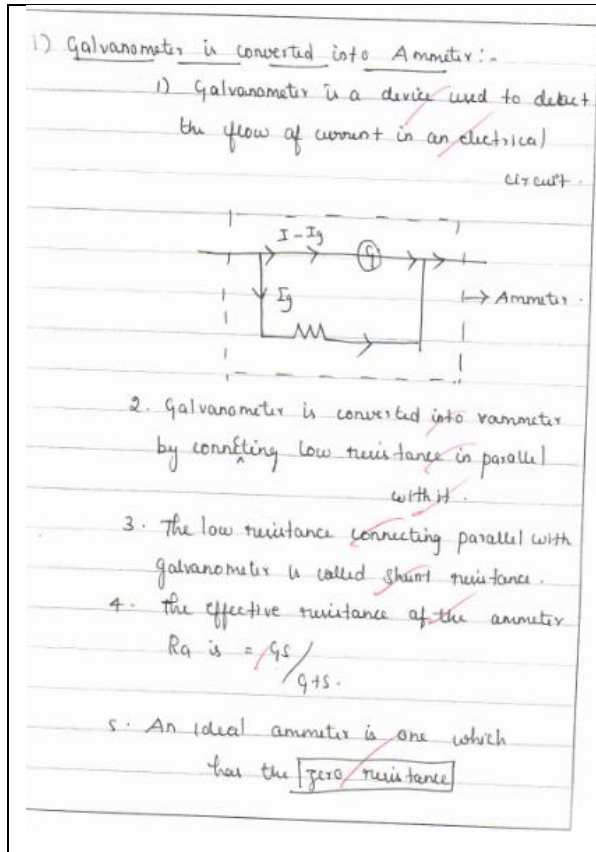 i) Galvanometer is converted into Ammeter:-
1) Galvanometer is a device used to detect
the flow of current in an electrical
circuit.
I - Ig
G
Ig
→ Ammeter.
2. Galvanometer is converted into rammeter
by connecting low resistance in parallel
with it.
3. The low resistance connecting parallel with
galvanometer is called shunt resistance.
4. The effective resistance of the ammeter
Ra is = GS/G+S.
5. An ideal ammeter is one which
has the zero resistance